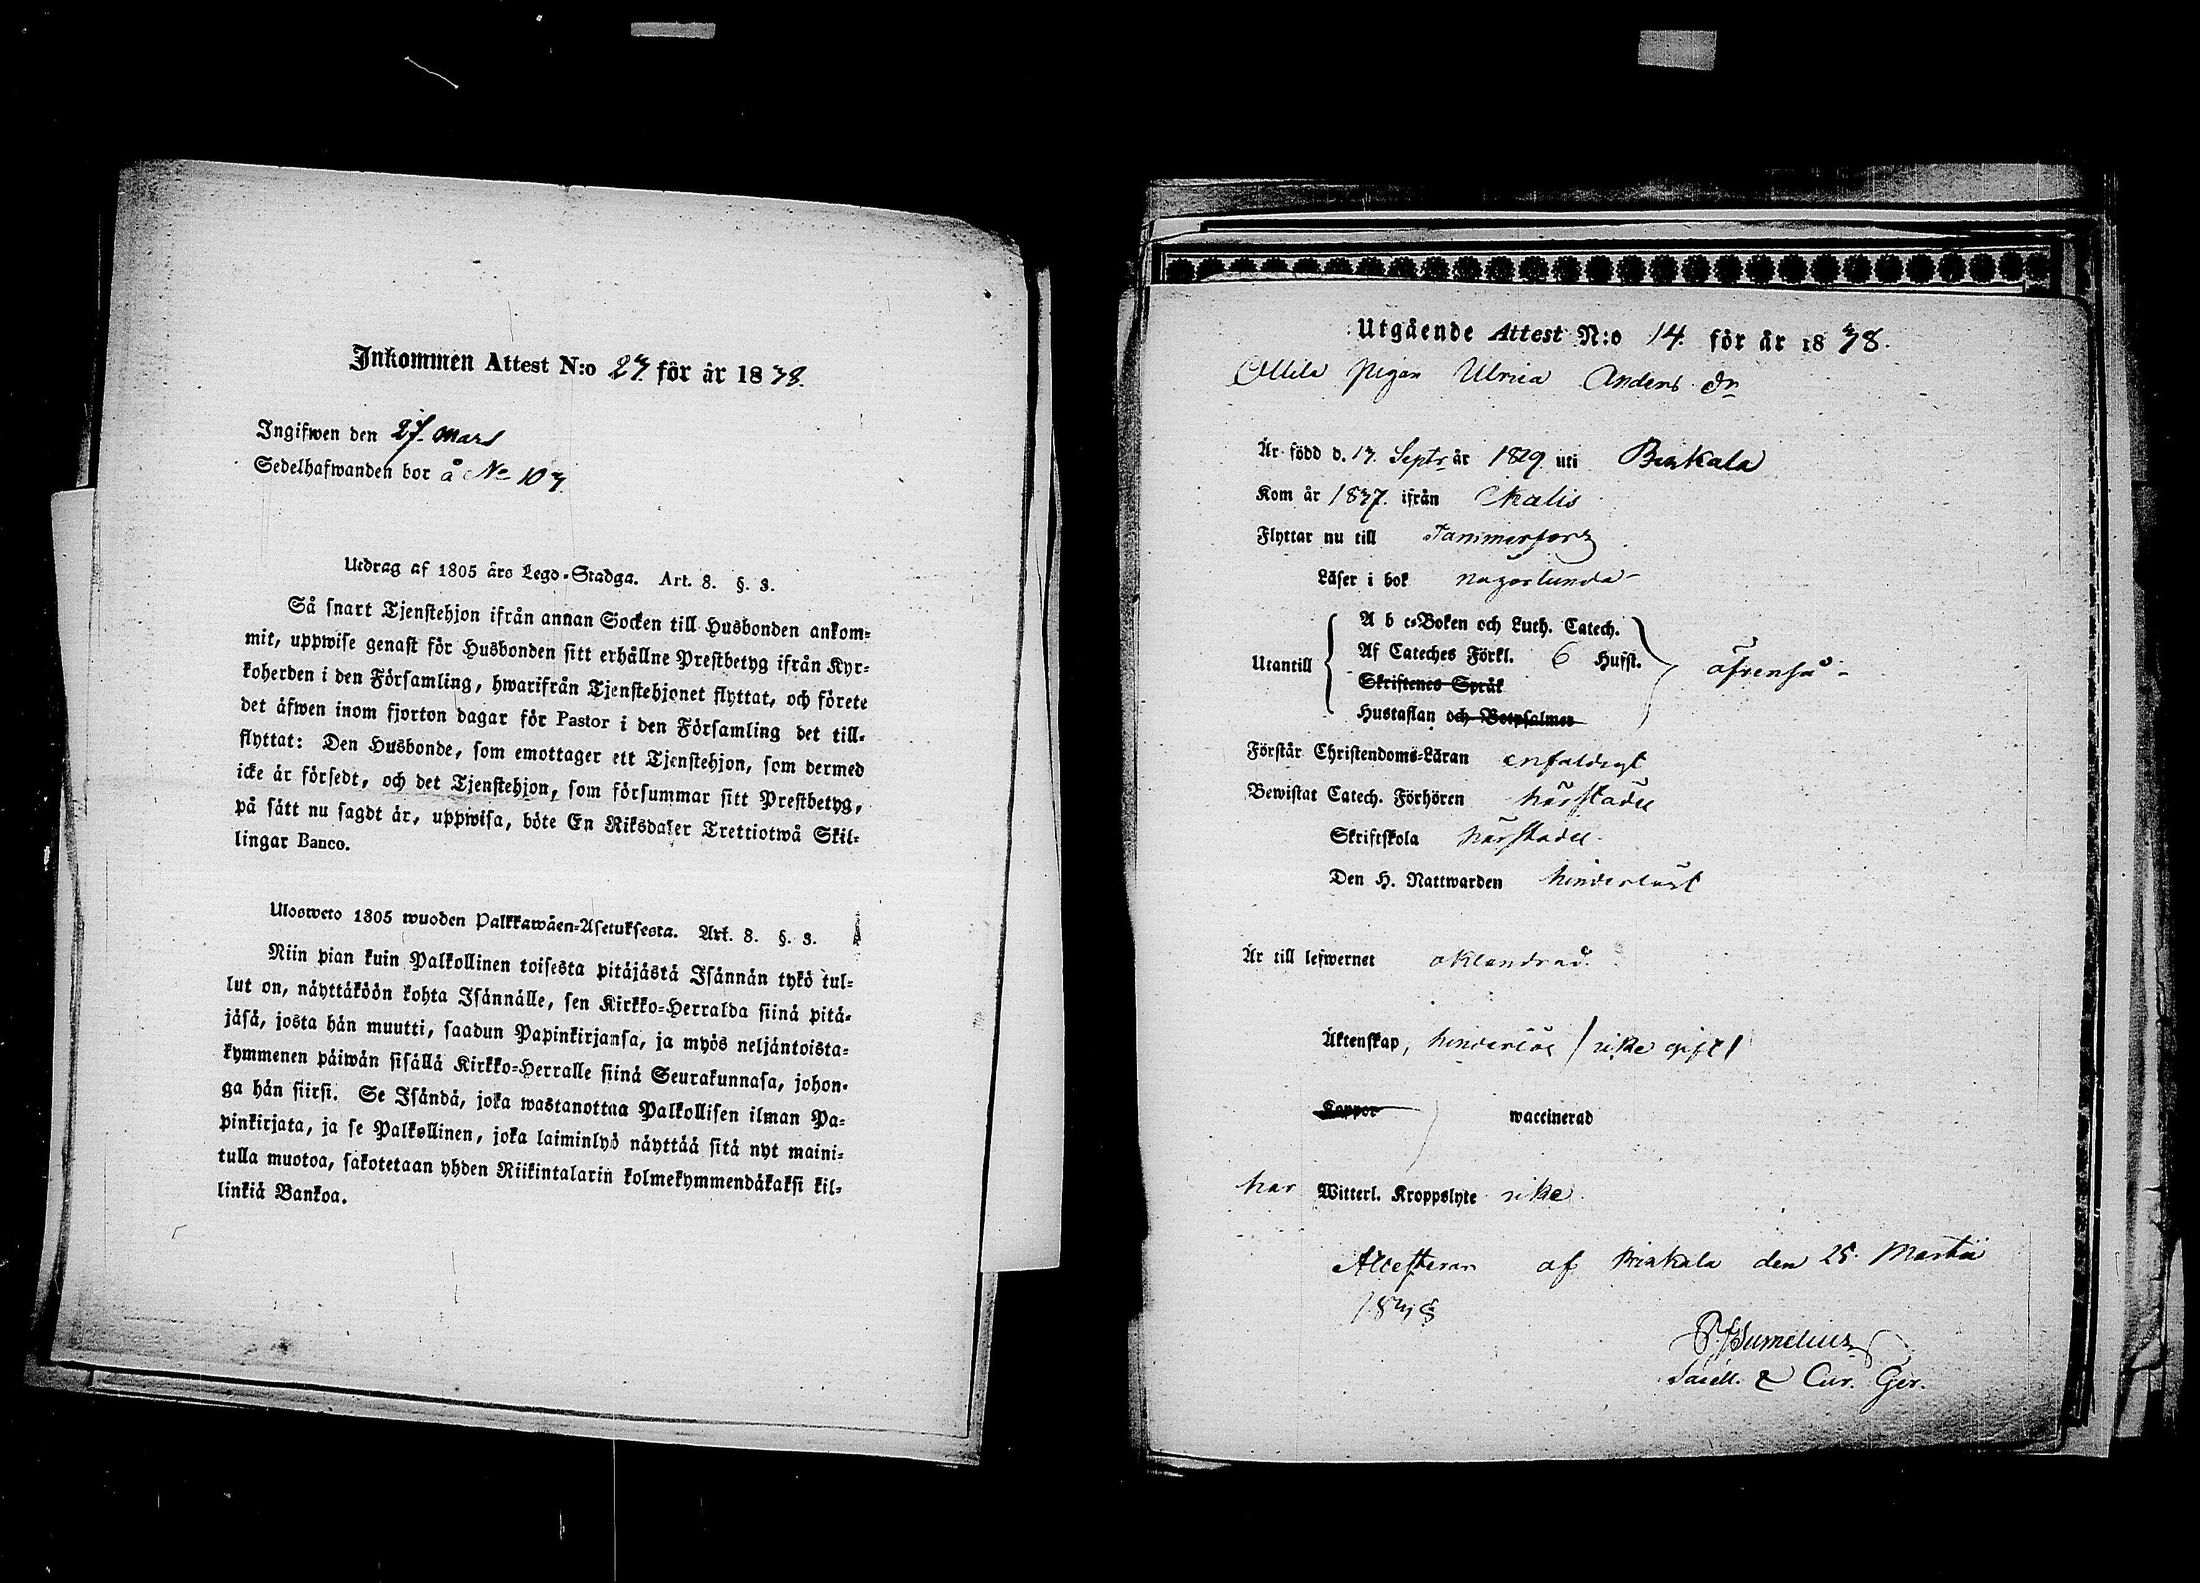 Inkommen Attest N:o 27. för år 1838.
Ingifwen den 27. Mars
Sedelhafwanden bor å No 107.
Utdrag af 1805 års Lego-Stadga. Art. 8. §. 3.
Så snart Tjenstehjon ifrån annan Socken till Husbonden ankom-
mit, uppwise genast för Husbonden sitt erhållne Prestbetyg ifrån Kyr-
koherden i den Församling, hwarifrån Tjenstehjonet flyttat, och förete
det äfwen inom fjorton dagar för Pastor i den Församling det till-
flyttat: Den Husbonde, som emottager ett Tjenstehjon, som dermed
icke är försedt, och det Tjenstehjon, som försummar sitt Prestbetyg,
på sätt nu sagdt är, uppwisa, böte En Riksdaler Trettiotwå Skil-
lingar Banco.
Ulosweto 1805 wuoden Palkkawäen-Asetuksesta. Art. 8. §. 3.
Niin pian kuin Palkollinen toisesta pitäjästä Isännän tykö tul-
lut on, näyttäköön kohta Isännälle, sen Kirkko-Herralda siinä pitä-
jäsä, josta hän muutti, saadun Papinkirjansa, ja myös neljäntoista-
kymmenen päiwän sisällä Kirkko-Herralle siinä Seurakunnasa, johon-
ga hän siirsi. Se Isändä, joka wastanottaa Palkollisen ilman Pa-
pinkirjata, ja se Palkollinen, joka laiminlyö näyttää sitä nyt maini-
tulla muotoa, sakotetaan yhden Riikintalarin kolmekymmendäkaksi kil-
linkiä Bankoa.
Utgående Attest N:o 14. för år 1838.
Ollila Pigan Ulrica Anders dr
Är född d. 17. Septr år 1819. uti Birkala
Kom år 1837. ifrån Kalis
Flyttar nu till Tammerfors
Läser i bok någorlunda
Utantill
A b c-Boken och Luth. Catech.
Af Cateches Förkl. 6 Hufst.
Skriftenes Språk
Hustaflan och Botpsalmer
äfvenså
Förstår Christendoms-Läran enfaldigt
Bewistat Catech. Förhören härstädes
Skriftskola härstädes
Den H. Nattwarden hinderlöst
Är till lefwernet oklandrad.
Äktenskap, hinderlös / icke gift /
Koppor waccinerad
har Witterl. Kroppslyte icke.
Attesteras af Birkala den 25. Martii
1838
Sacell. & Cur. Ger.